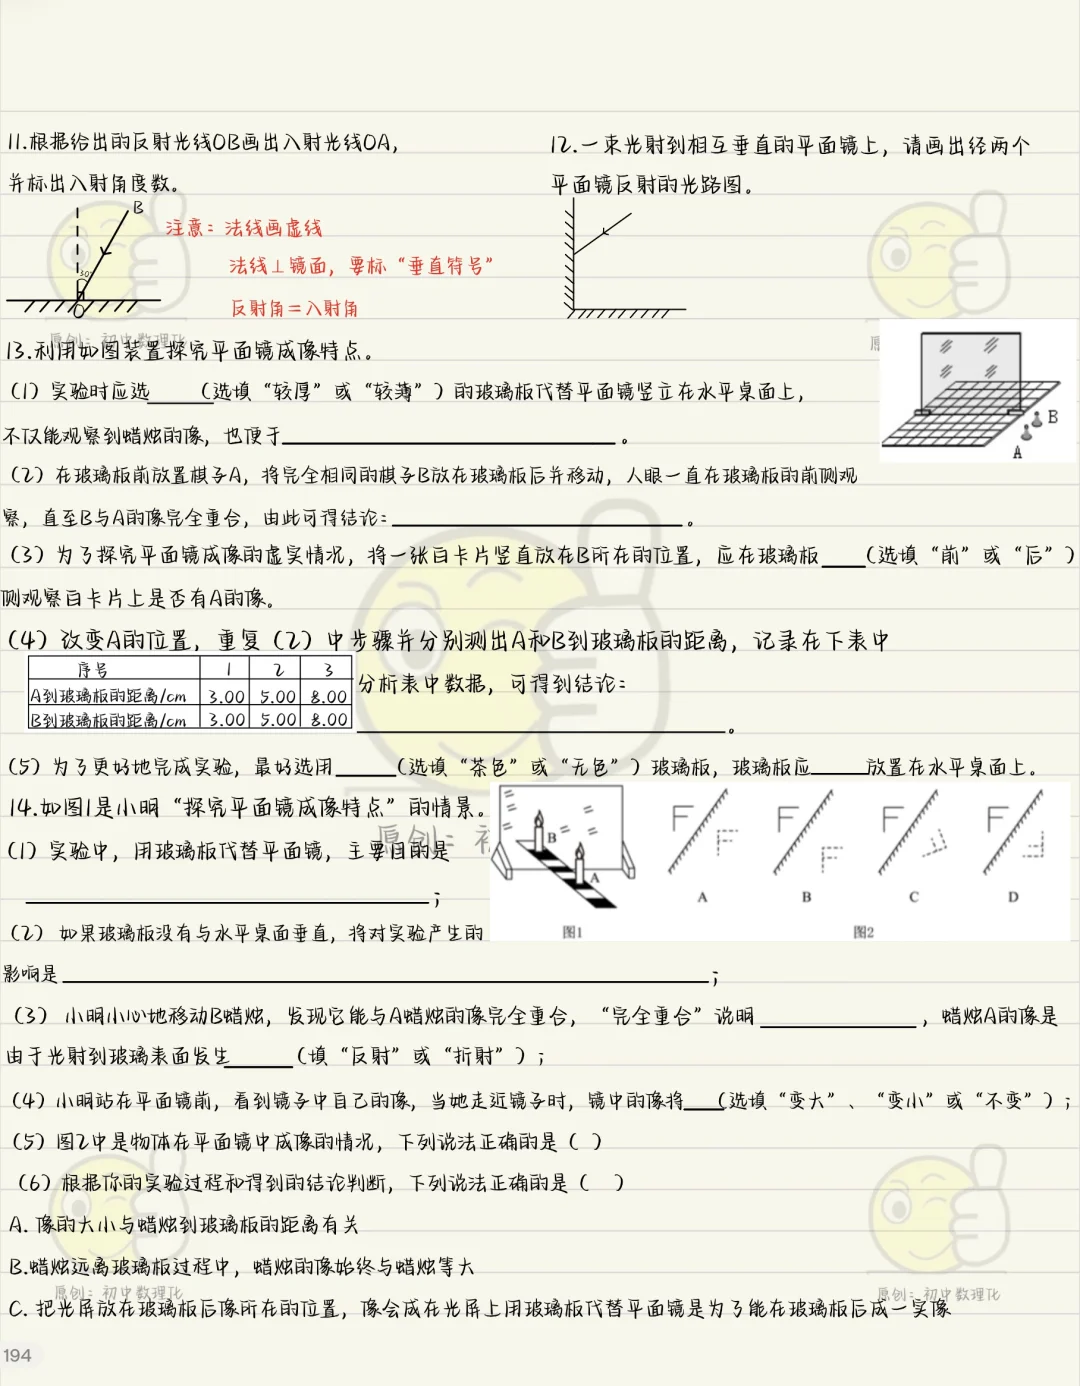 11.根据给出的反射光线OB画出入射光线OA，
并标出入射角度数。
B
30°
O
注意：法线画虚线
法线⊥镜面，要标“垂直符号”
反射角＝入射角
12.一束光射到相互垂直的平面镜上，请画出经两个
平面镜反射的光路图。
原创：初中数理化
13.利用如图装置探究平面镜成像特点。
（1）实验时应选____（选填“较厚”或“较薄”）的玻璃板代替平面镜竖立在水平桌面上，
不仅能观察到蜡烛的像，也便于____。
B
A
（2）在玻璃板前放置棋子A，将完全相同的棋子B放在玻璃板后并移动，人眼一直在玻璃板的前侧观
察，直至B与A的像完全重合，由此可得结论：____。
（3）为了探究平面镜成像的虚实情况，将一张白卡片竖直放在B所在的位置，应在玻璃板____（选填“前”或“后”）
侧观察白卡片上是否有A的像。
（4）改变A的位置，重复（2）中步骤并分别测出A和B到玻璃板的距离，记录在下表中
序号 1 2 3
A到玻璃板的距离/cm 3.00 5.00 8.00
B到玻璃板的距离/cm 3.00 5.00 8.00
分析表中数据，可得到结论：
____。
（5）为了更好地完成实验，最好选用____（选填“茶色”或“无色”）玻璃板，玻璃板应____放置在水平桌面上。
14.如图1是小明“探究平面镜成像特点”的情景。
（1）实验中，用玻璃板代替平面镜，主要目的是
____；
B
A
图1
F F F F
A B C D
图2
（2） 如果玻璃板没有与水平桌面垂直，将对实验产生的
影响是____；
（3） 小明小心地移动B蜡烛，发现它能与A蜡烛的像完全重合，“完全重合”说明____，蜡烛A的像是
由于光射到玻璃表面发生____（填“反射”或“折射”）；
（4）小明站在平面镜前，看到镜子中自己的像，当她走近镜子时，镜中的像将____（选填“变大”、“变小”或“不变”）；
（5）图2中是物体在平面镜中成像的情况，下列说法正确的是（ ）
（6）根据你的实验过程和得到的结论判断，下列说法正确的是（ ）
A. 像的大小与蜡烛到玻璃板的距离有关
B.蜡烛远离玻璃板过程中，蜡烛的像始终与蜡烛等大
原创：初中数理化
原创：初中数理化
C. 把光屏放在玻璃板后像所在的位置，像会成在光屏上用玻璃板代替平面镜是为了能在玻璃板后成一实像
194